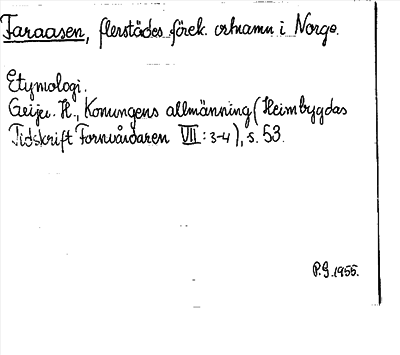 Faraasen, flerstädes förek. ortnamn i Norge.
Etymologi.
Geijer. H., Konungens allmänning (Heimbygdas
Tidskrift Fornvårdaren VII: 3-4), s. 53.
P.G. 1955.